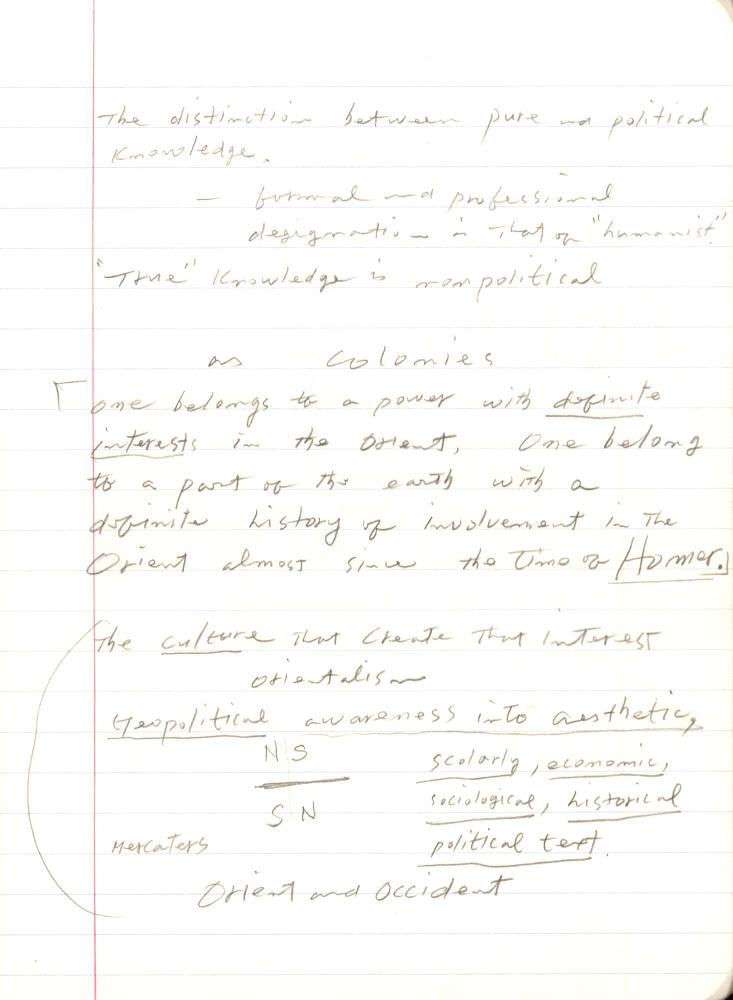 The distinction between pure and political
Knowledge.
— formal and professional
designation is that of "humanist"
"True" Knowledge is nonpolitical
as colonies
one belongs to a power with definite
interests in the Orient, One belong
to a part of the earth with a
definite history of involvement in The
Orient almost since the Time of Homer.
The culture That Create That Interest
orientalism
Geopolitical awareness into aesthetic,
N S
scolarly, economic,
S N
sociological, historical
Mercaters
political text.
Orient and Occident